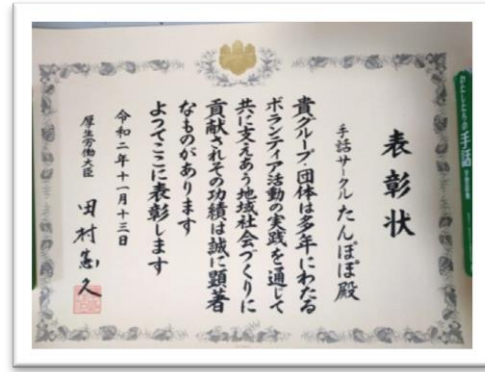 表彰状
手話サークル たんぽぽ殿
貴グループ・団体は多年にわたる
ボランティア活動の実践を通じて
共に支えあう地域社会づくりに
貢献されその功績は誠に顕著
なものがあります
よってここに表彰します
令和二年十一月十三日
厚生労働大臣 田村憲久
手話